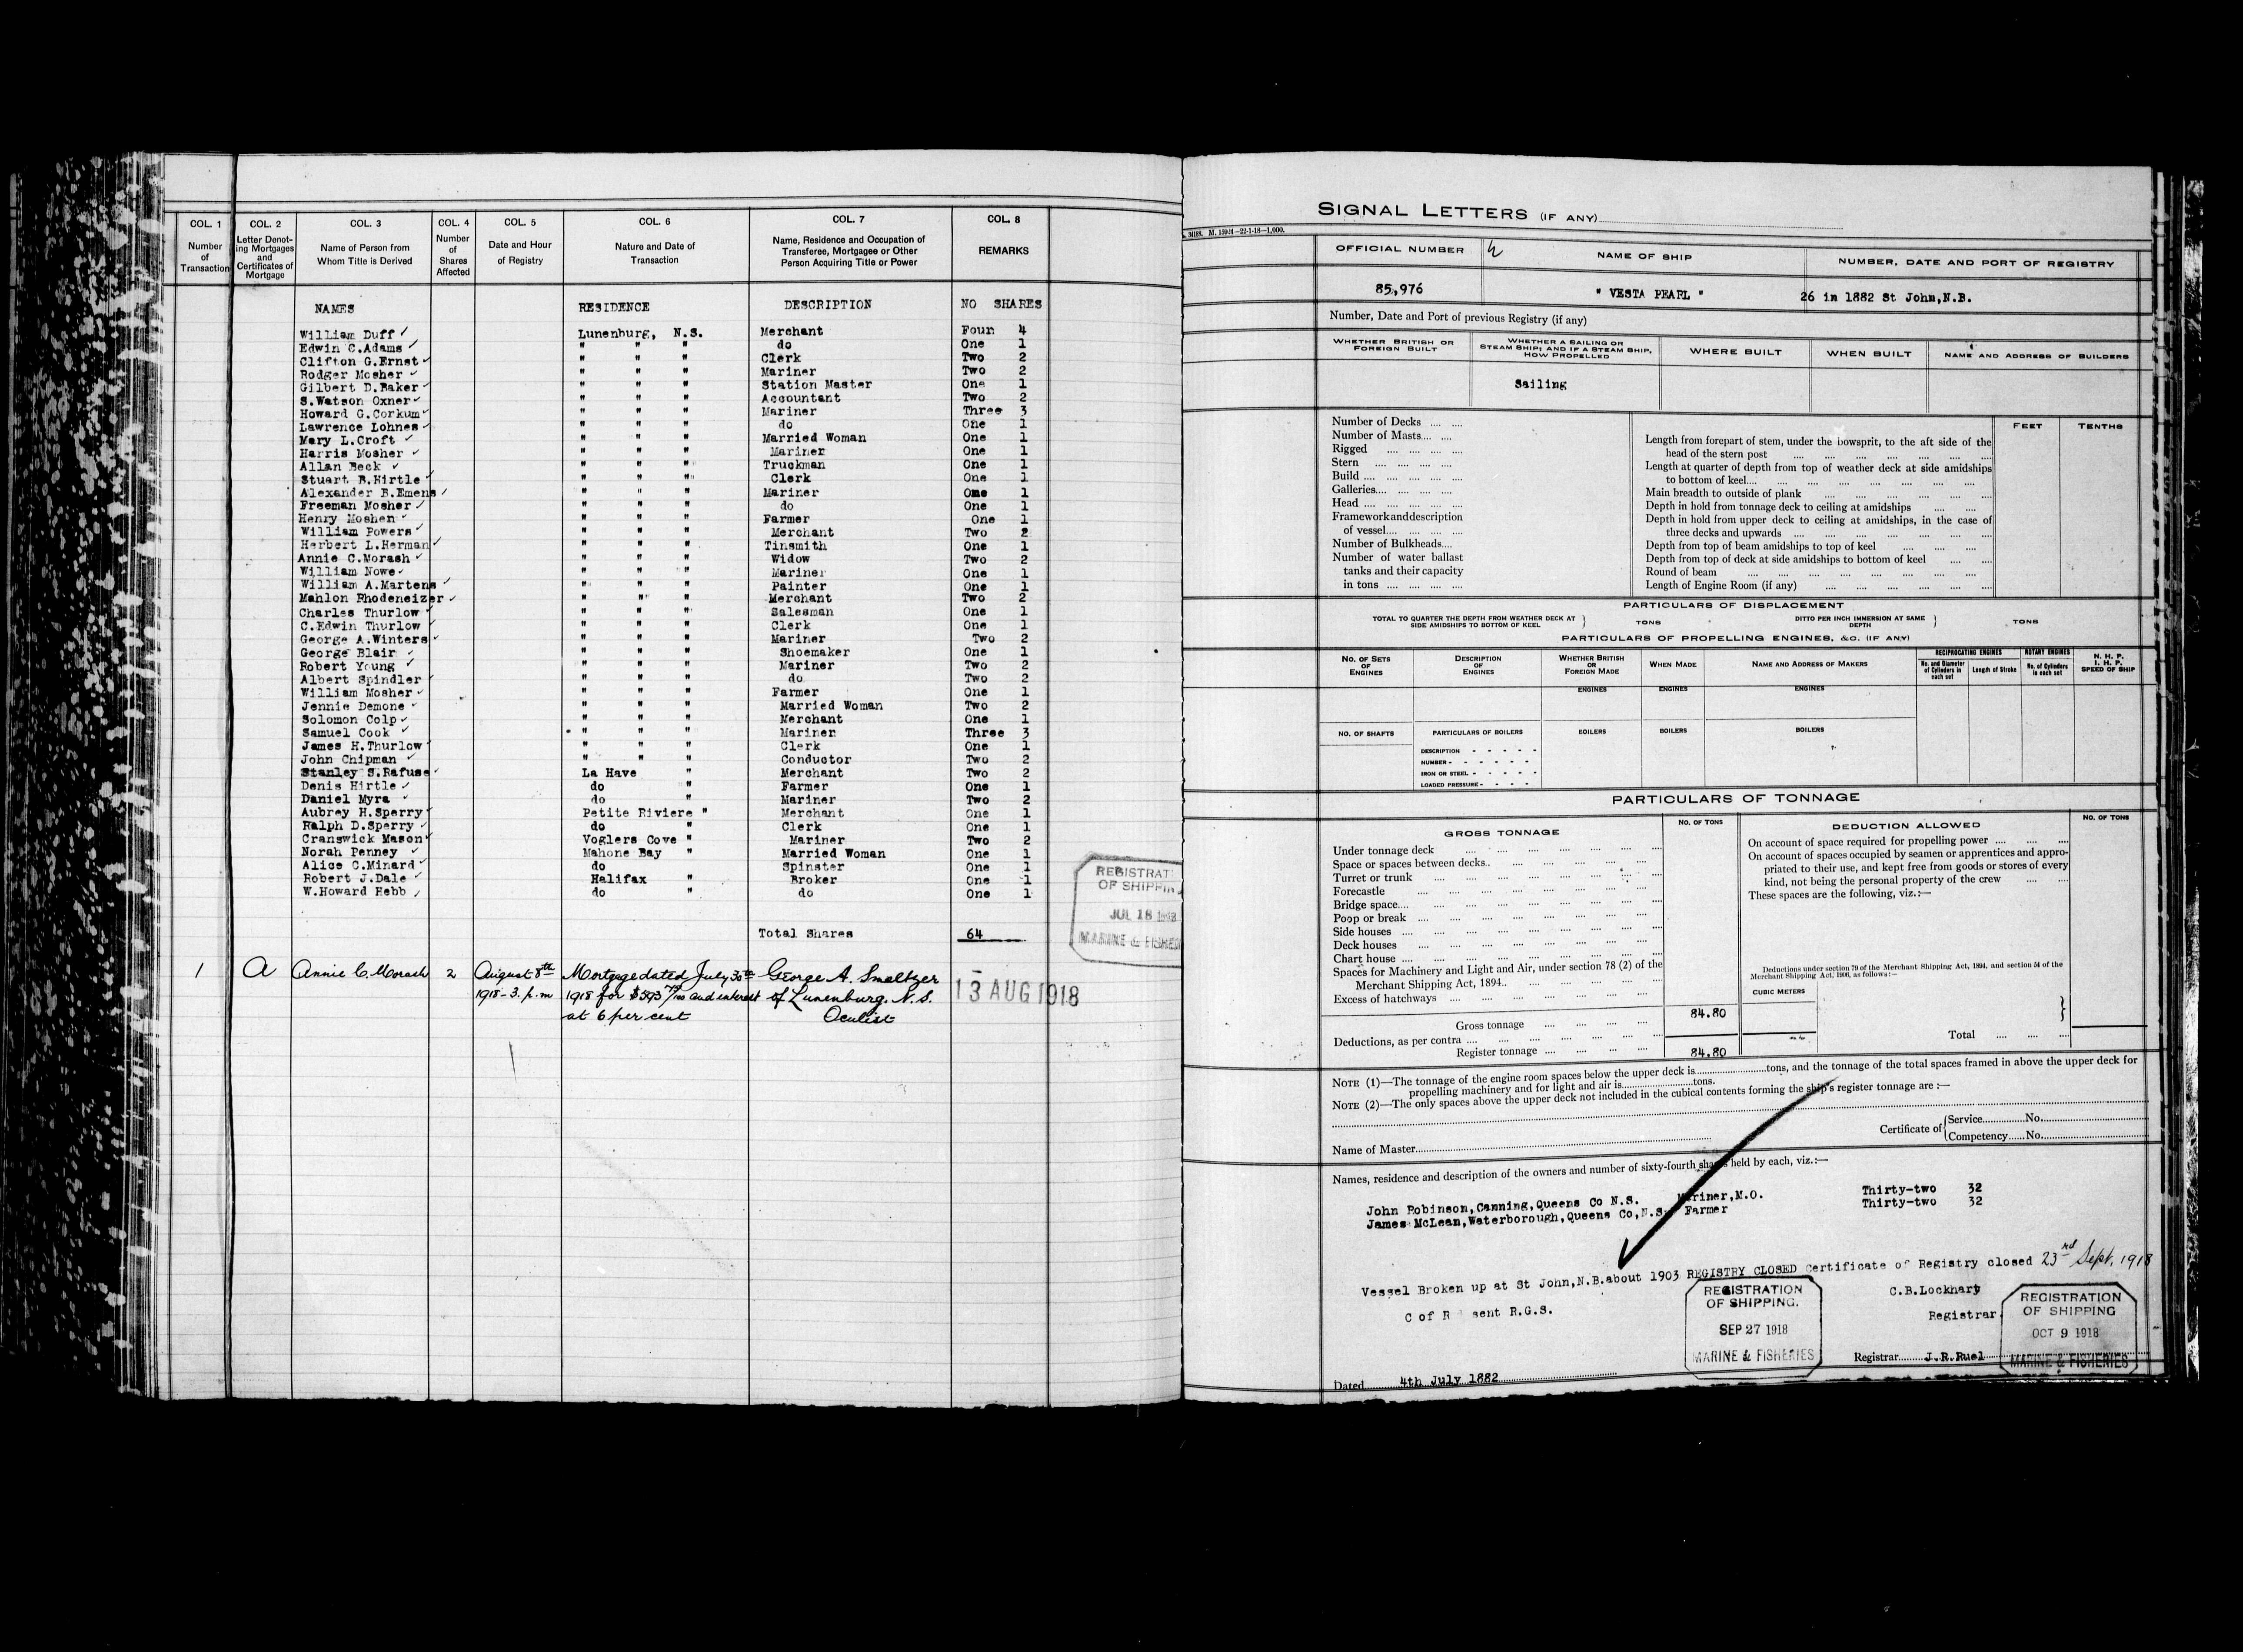 COL. 1 COL. 2 COL. 3 COL. 4 COL. 5 COL. 6 COL. 7 COL. 8
Number of Transaction
Letter Denoting Mortgages and Certificates of Mortgage
Name of Person from Whom Title is Derived
Number of Shares Affected
Date and Hour of Registry
Nature and Date of Transaction
Name, Residence and Occupation of Transferee, Mortgagee or Other Person Acquiring Title or Power
REMARKS
NAMES RESIDENCE DESCRIPTION NO SHARES
William Duff ✓ Lunenburg, N.S. Merchant Four 4
Edwin C.Adams ✓ " " " do One 1
Clifton G.Ernst ✓ " " " Clerk Two 2
Rodger Mosher ✓ " " " Mariner Two 2
Gilbert D.Baker ✓ " " " Station Master One 1
S.Watson Oxner ✓ " " " Accountant Two 2
Howard G.Corkum ✓ " " " Mariner Three 3
Lawrence Lohnes ✓ " " " do One 1
Mary L.Croft ✓ " " " Married Woman One 1
Harris Mosher ✓ " " " Mariner One 1
Allan Beck ✓ " " " Truckman One 1
Stuart B.Hirtle ✓ " " " Clerk One 1
Alexander B.Emens ✓ " " " Mariner One 1
Freeman Mosher ✓ " " " do One 1
Henry Moshen ✓ " " " Farmer One 1
William Powers ✓ " " " Merchant Two 2
Herbert L.Herman ✓ " " " Tinsmith One 1
Annie C.Morash ✓ " " " Widow Two 2
William Nowe ✓ " " " Mariner One 1
William A.Martens ✓ " " " Painter One 1
Mahlon Rhodeneizer ✓ " " " Merchant Two 2
Charles Thurlow ✓ " " " Salesman One 1
C.Edwin Thurlow ✓ " " " Clerk One 1
George A.Winters ✓ " " " Mariner Two 2
George Blair ✓ " " " Shoemaker One 1
Robert Young ✓ " " " Mariner Two 2
Albert Spindler ✓ " " " do Two 2
William Mosher ✓ " " " Farmer One 1
Jennie Demone ✓ " " " Married Woman Two 2
Solomon Colp ✓ " " " Merchant One 1
Samuel Cook ✓ " " " Mariner Three 3
James H.Thurlow ✓ " " " Clerk One 1
John Chipman ✓ " " " Conductor Two 2
Stanley S.Rafuse ✓ La Have " Merchant Two 2
Denis Hirtle ✓ do " Farmer One 1
Daniel Myra ✓ do " Mariner Two 2
Aubrey H.Sperry ✓ Petite Riviere " Merchant One 1
Ralph D.Sperry ✓ do " Clerk One 1
Cranswick Mason ✓ Voglers Cove " Mariner Two 2
Norah Penney ✓ Mahone Bay " Married Woman One 1
Alice C.Minard ✓ do " Spinster One 1
Robert J.Dale ✓ Halifax " Broker One 1
W.Howard Hebb ✓ do " do One 1
Total Shares 64
REGISTRAT
OF SHIPPIN
JUL 18
MARINE & FISHE
1 A Annie C. Morash 2 August 8th Mortgage dated July 30th George A. Smeltzer
1918 - 3. p.m 1918 for and interest of Lunenburg. N.S.
at 6 per cent Oculist
13 AUG 1918
SIGNAL LETTERS (IF ANY)
M. 13924—22-1-18—1,000.
OFFICIAL NUMBER NAME OF SHIP NUMBER, DATE AND PORT OF REGISTRY
85,976 " VESTA PEARL " 26 in 1882 St John,N.B.
Number, Date and Port of previous Registry (if any)
WHETHER BRITISH OR FOREIGN BUILT
WHETHER A SAILING OR STEAM SHIP; AND IF A STEAM SHIP, HOW PROPELLED
WHERE BUILT WHEN BUILT NAME AND ADDRESS OF BUILDERS
Sailing
FEET TENTHS
Number of Decks
Number of Masts
Rigged
Stern
Build
Galleries
Head
Framework and description
of vessel
Number of Bulkheads
Number of water ballast
tanks and their capacity
in tons
Length from forepart of stem, under the bowsprit, to the aft side of the
head of the stern post
Length at quarter of depth from top of weather deck at side amidships
to bottom of keel
Main breadth to outside of plank
Depth in hold from tonnage deck to ceiling at amidships
Depth in hold from upper deck to ceiling at amidships, in the case of
three decks and upwards
Depth from top of beam amidships to top of keel
Depth from top of deck at side amidships to bottom of keel
Round of beam
Length of Engine Room (if any)
PARTICULARS OF DISPLACEMENT
TOTAL TO QUARTER THE DEPTH FROM WEATHER DECK AT SIDE AMIDSHIPS TO BOTTOM OF KEEL } TONS
DITTO PER INCH IMMERSION AT SAME DEPTH } TONS
PARTICULARS OF PROPELLING ENGINES, &C. (IF ANY)
NO. OF SETS OF ENGINES
DESCRIPTION OF ENGINES
WHETHER BRITISH OR FOREIGN MADE
WHEN MADE
NAME AND ADDRESS OF MAKERS
RECIPROCATING ENGINES
No. and Diameter of Cylinders in each set
Length of Stroke
ROTARY ENGINES
No. of Cylinders in each set
N. H. P.
I. H. P.
SPEED OF SHIP
ENGINES ENGINES ENGINES
NO. OF SHAFTS PARTICULARS OF BOILERS BOILERS BOILERS BOILERS
DESCRIPTION
NUMBER
IRON OR STEEL
LOADED PRESSURE
PARTICULARS OF TONNAGE
GROSS TONNAGE NO. OF TONS DEDUCTION ALLOWED NO. OF TONS
Under tonnage deck
Space or spaces between decks
Turret or trunk
Forecastle
Bridge space
Poop or break
Side houses
Deck houses
Chart house
Spaces for Machinery and Light and Air, under section 78 (2) of the
Merchant Shipping Act, 1894
Excess of hatchways
Gross tonnage 84.80
Deductions, as per contra
Register tonnage 84.80
On account of space required for propelling power
On account of spaces occupied by seamen or apprentices and appro-
priated to their use, and kept free from goods or stores of every
kind, not being the personal property of the crew
These spaces are the following, viz.:—
Deductions under section 79 of the Merchant Shipping Act, 1894, and section 54 of the
Merchant Shipping Act, 1906, as follows:—
CUBIC METERS
Total
NOTE (1)—The tonnage of the engine room spaces below the upper deck is tons, and the tonnage of the total spaces framed in above the upper deck for
propelling machinery and for light and air is tons.
NOTE (2)—The only spaces above the upper deck not included in the cubical contents forming the ship's register tonnage are :—
Name of Master
Certificate of { Service No.
Competency No.
Names, residence and description of the owners and number of sixty-fourth shares held by each, viz.:—
John Robinson,Canning,Queens Co N.S. Mariner,M.O. Thirty-two 32
James McLean,Waterborough,Queens Co,N.S. Farmer Thirty-two 32
Vessel Broken up at St John,N.B.about 1903 REGISTRY CLOSED Certificate of Registry closed 23rd Sept. 1918
C of R sent R.G.S.
C.B.Lockhart
Registrar
REGISTRATION
OF SHIPPING.
SEP 27 1918
MARINE & FISHERIES
REGISTRATION
OF SHIPPING
OCT 9 1918
MARINE & FISHERIES
Registrar J.R.Ruel
Dated 4th July 1882